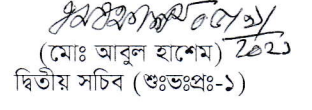 (মোঃ আবুল হাশেম)
দ্বিতীয় সচিব (শুঃভঃপ্রঃ-১)